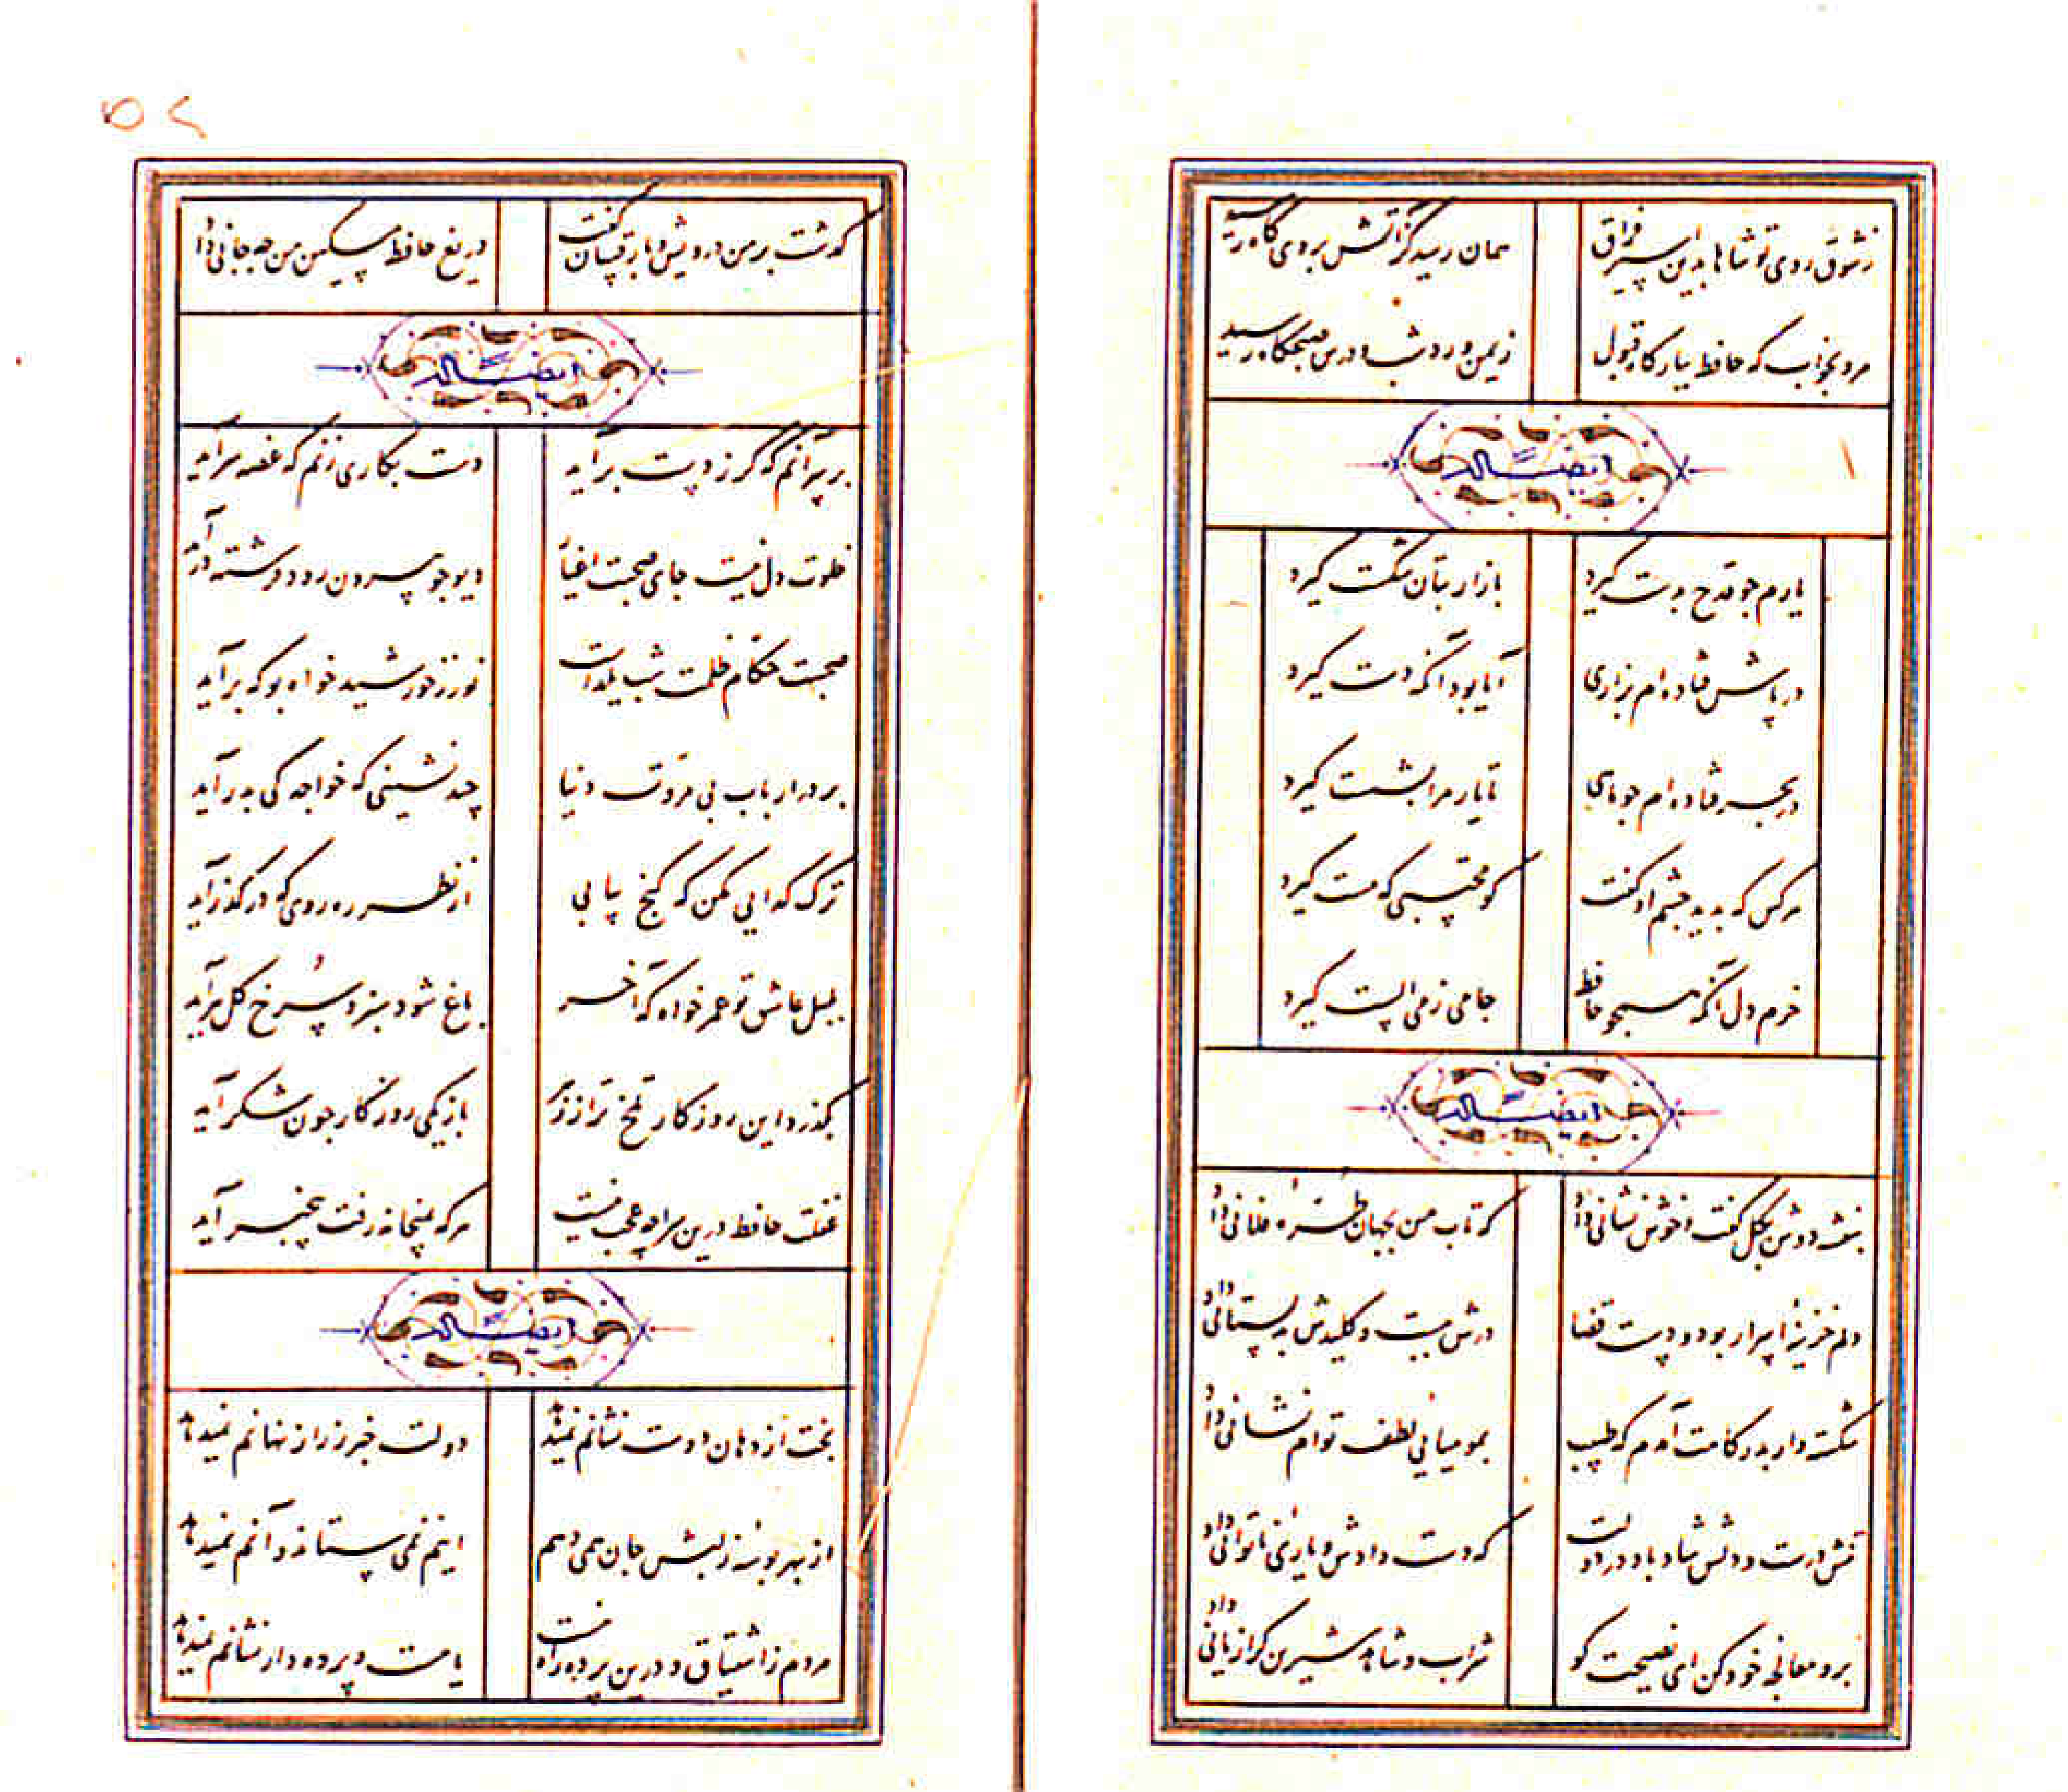 ز شوق روی تو شاها بدین اسیر فراق همان رسید کز آتش بروی کاه رسید
مرو بخواب که حافظ ببارگاه قبول ز یمن ورد شب و درس صبحگاه رسید
ایضاً له
یارم چو قدح بدست گیرد بازار بتان شکست گیرد
در پاش فتاده ام بزاری آیا بود آنکه دست گیرد
در بحر فتاده ام چو ماهی تا یار مرا بشست گیرد
هر کس که بدید چشم او گفت کو محتسبی که مست گیرد
خرم دل آنکه همچو حافظ جامی ز می الست گیرد
ایضاً له
بنفشه دوش بگل گفت و خوش نشانی داد که تاب من بجهان طره فلانی داد
دلم خزینه اسرار بود و دست قضا درش ببست و کلیدش بدلستانی داد
شکسته وار بدرگاهت آمدم که طبیب بمومیایی لطف توام نشانی داد
تنش درست و دلش شاد باد در دولت که دست دادش و یاری ناتوانی داد
برو معالجه خود کن ای نصیحت گو شراب و شاهد شیرین کرا زیانی داد
۵۸
گذشت بر من درویش و با رقیبان گفت دریغ حافظ مسکین من چه جانی داد
ایضاً له
بر سر آنم که گر ز دست برآید دست بکاری زنم که غصه سرآید
خلوت دل نیست جای صحبت اغیار دیو چو بیرون رود فرشته درآید
صحبت حکام ظلمت شب یلداست نور ز خورشید خواه بو که برآید
بر در ارباب بی مروت دنیا چند نشینی که خواجه کی بدرآید
ترک گدایی مکن که گنج بیابی از نظر ره روی که در گذر آید
بلبل عاشق تو عمر خواه که آخر باغ شود سبز و سرخ گل برآید
بگذرد این روزگار تلخ تر از زهر باز یکی روزگار چون شکر آید
غفلت حافظ درین سراچه عجب نیست هر که بمیخانه رفت بیخبر آید
ایضاً له
بخت از دهان دوست نشانم نمیدهد دولت خبر ز راز نهانم نمیدهد
از بهر بوسه ز لبش جان همی دهم اینم نمی ستاند و آنم نمیدهد
مردم ز اشتیاق و درین پرده راه نیست یا هست و پرده دار نشانم نمیدهد